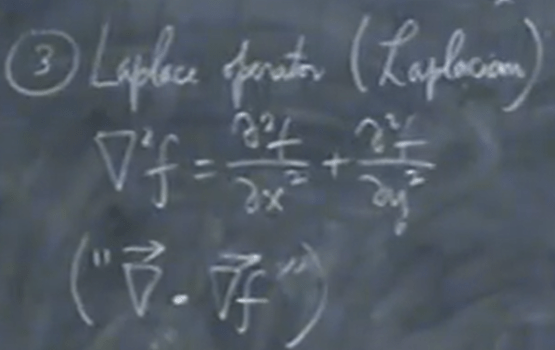 ③ Laplace operator (Laplacian)
∇²f = ∂²f/∂x² + ∂²f/∂y²
("∇⃗ · ∇⃗f")